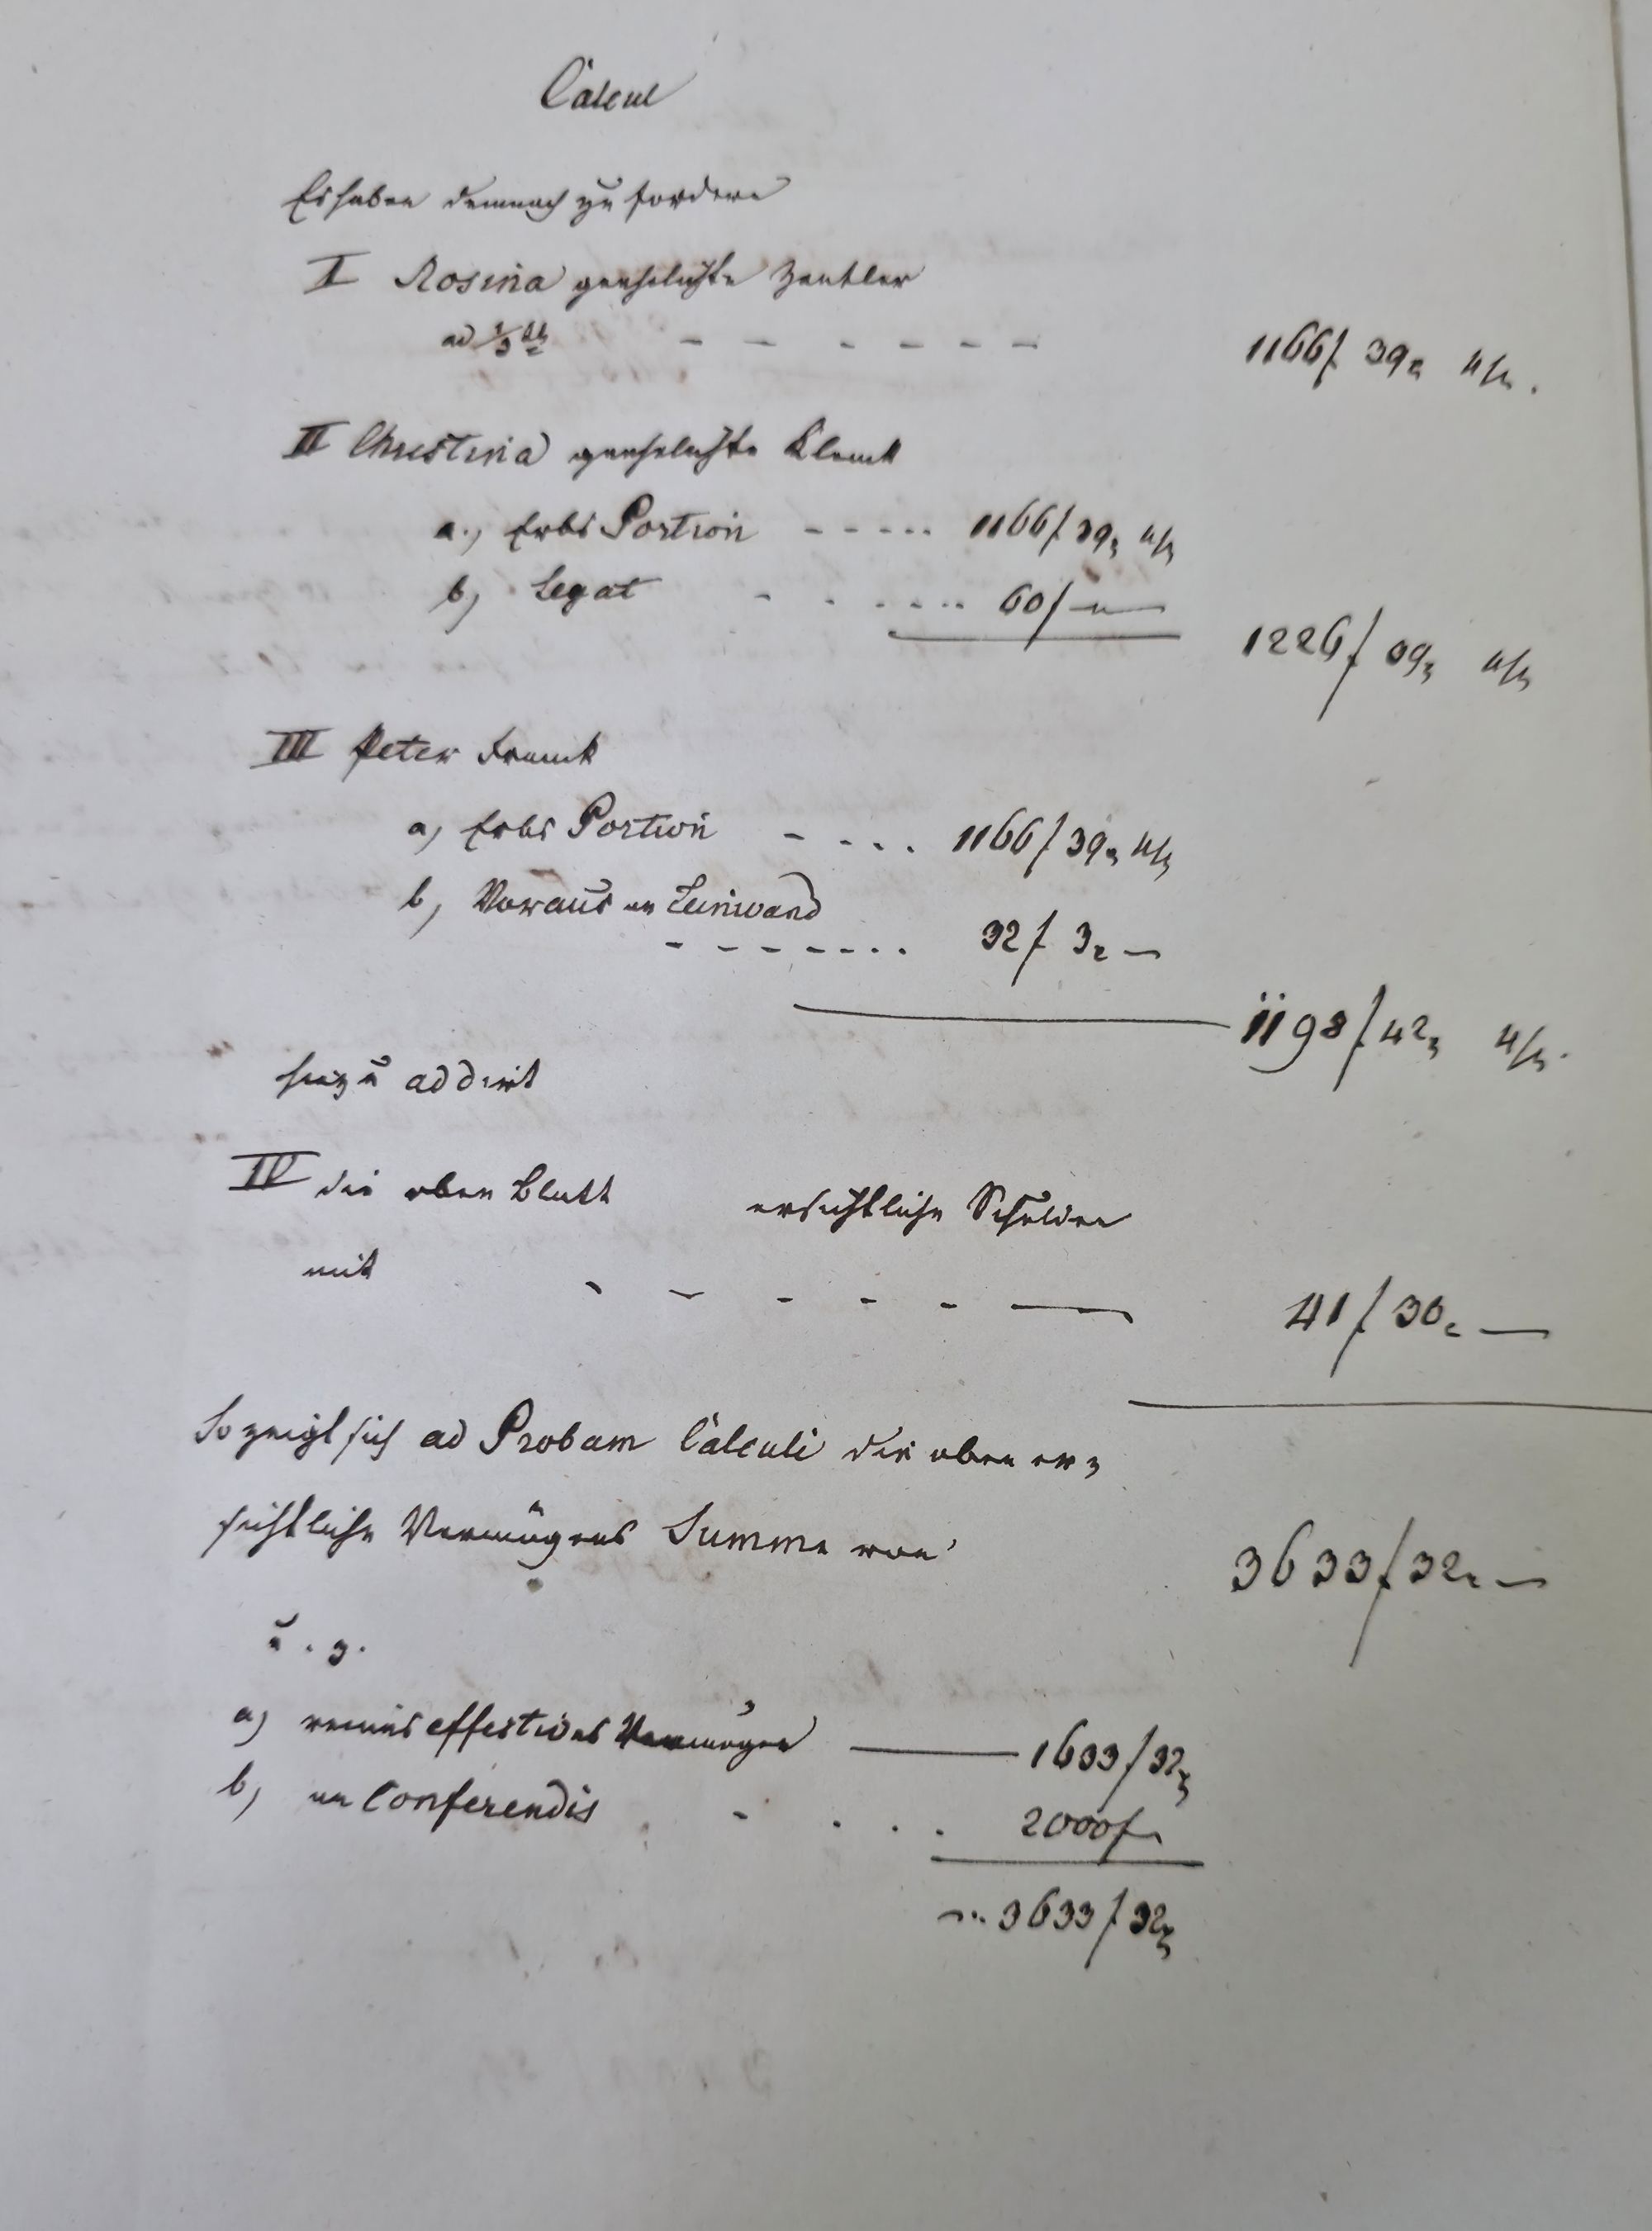 Calcul
Es haben demnach zu fordern
I Rosina geehelichte
ad 1/3tl - - - - - - 1166f 39x
II Christina geehelichte Klenk
a., Erbs Portion - - - - - 1166f 39x
b, Legat - - - .... 60f —
1226f 39x
III Peter Frank
a, Erbs Portion - - .. 1166f 39x
b, Voraus an Leinwand
- - - - - - - 32f 3x —
1198f 42x
hiezu addirt
IV die oben Blatt ersichtliche Schulden
mit - - - - - — 41f 30x —
So zeigt sich ad Probam Calculi die oben er=
sichtliche Vermögens Summe von
3633f 32x —
u. z.
a) reines effectives Vermögen — 1633f 32x
b, an Conferendis - . . . 2000f
3633f 32x